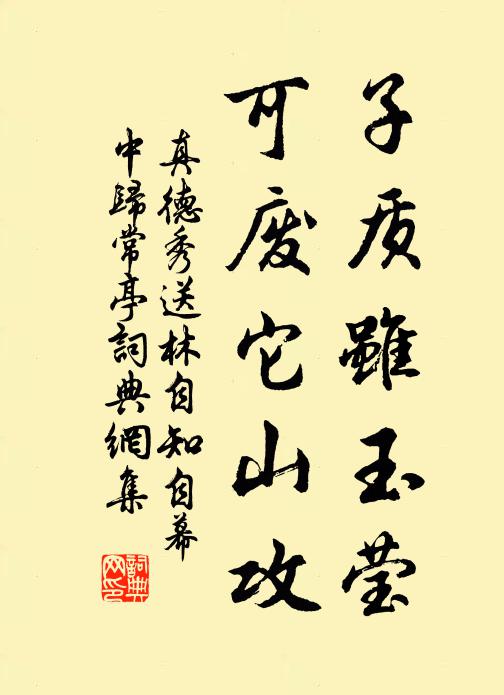 子质雖玉莹
可废它山攻
真德秀送林自知自幕
中歸常亭詞典網集
詞典
网印